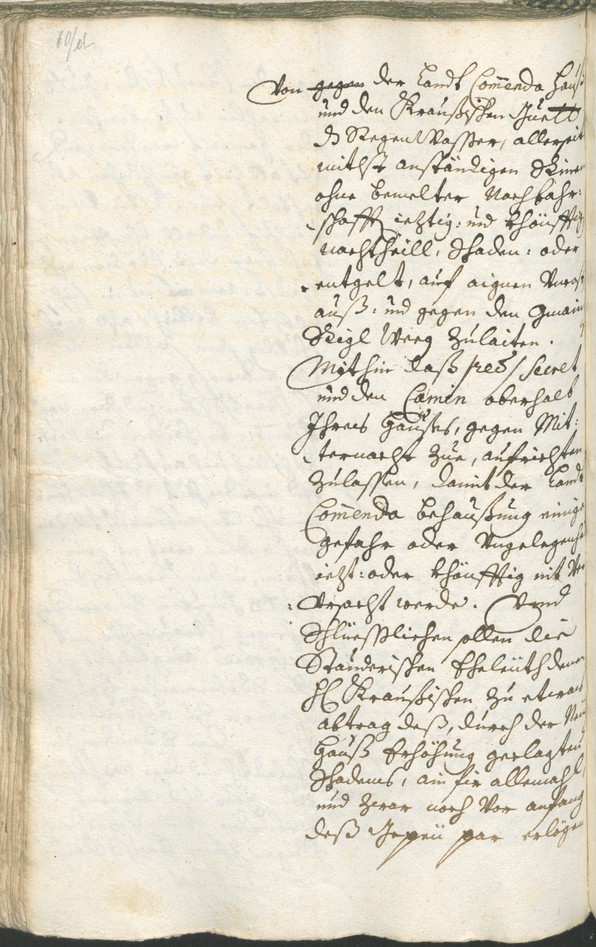 Von ~~gegen~~ der Landt Com̄enda Hauß
und den Kraußischen
ds Regen Wasser, allerseit
mithst anständigen Rinen
ohne bemelter Nachbahr-
schafft ieztig: und khönfftig
nachtheill, schaden: oder
entgelt, auf aignen Uncos
auß: und gegen den Gmain
Rigl Weeg zulaiten.
Mithin daß secret
und den Camin oberhalb
Ihres Haußes, gegen Mit-
ternacht zue, aufrichten
zulassen, damit der Landt
Com̄enda behaußung einige
gefahr oder Ungelegenh
iezt: oder khönfftig nit Ver
Ursacht werde. Vnnd
Schließlichen sollen die
Ständerischen Eheleüth denen
H Kraußischen zu etwas
abtrag deß, durch der Neu
Hauß Erhöhung gerlagten
Schadens, ain fir allemahl
und zwar noch Vor anfang
deß par erlögen